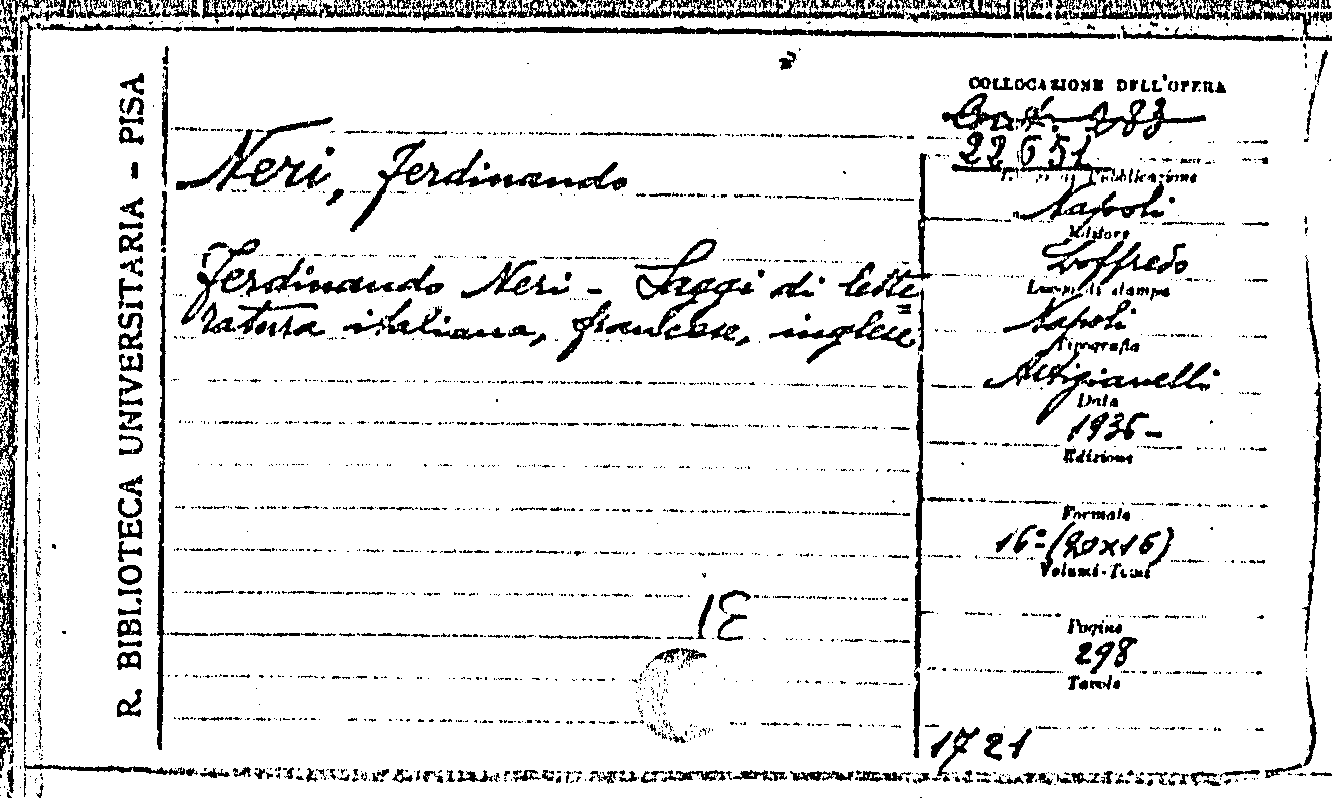 R. BIBLIOTECA UNIVERSITARIA - PISA
Neri, Ferdinando
Ferdinando Neri - Saggi di lette=
ratura italiana, francese, inglese
1E
COLLOCAZIONE DELL'OPERA
Cont. 283
22651
Luogo di Pubblicazione
Napoli
Editore
Loffredo
Luogo di stampa
Napoli
Tipografia
Artigianelli
Data
1936-
Edizione
Formato
16º (20x16)
Volumi-Tomi
Pagine
298
Tavole
1721